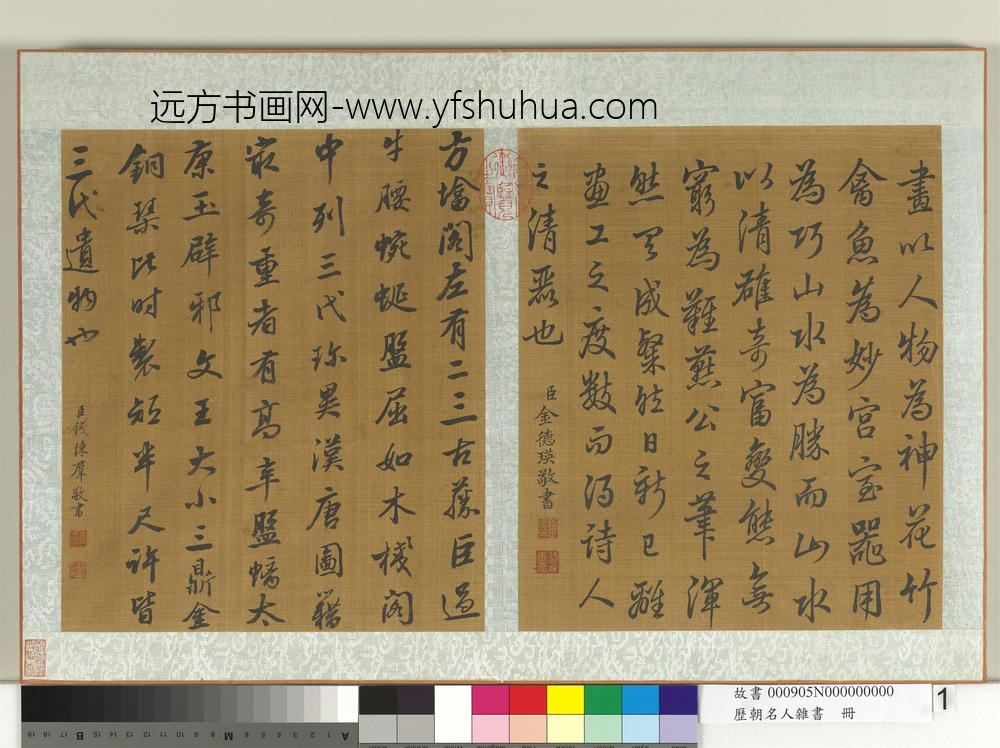 远方书画网-www.yfshuhua.com
畫以人物為神花竹
禽魚為妙宮室器用
為巧山水為勝而山水
以清雄奇富變態無
窮為難燕公之筆渾
然天成粲然日新已離
畫工之度數而得詩人
之清麗也
臣金德瑛敬書
方塘閣左有二三古藤巨過
牛腰蜿蜒盤屈如木棧閣
中列三代珍異漢唐圖籍
最奇重者有高辛盤蟠太
康玉辟邪文王大小三鼎金
銅琹此時製短半尺許皆
三代遺物也
臣錢陳羣敬書
故書 000905N000000000
歷朝名人雜書 冊
1